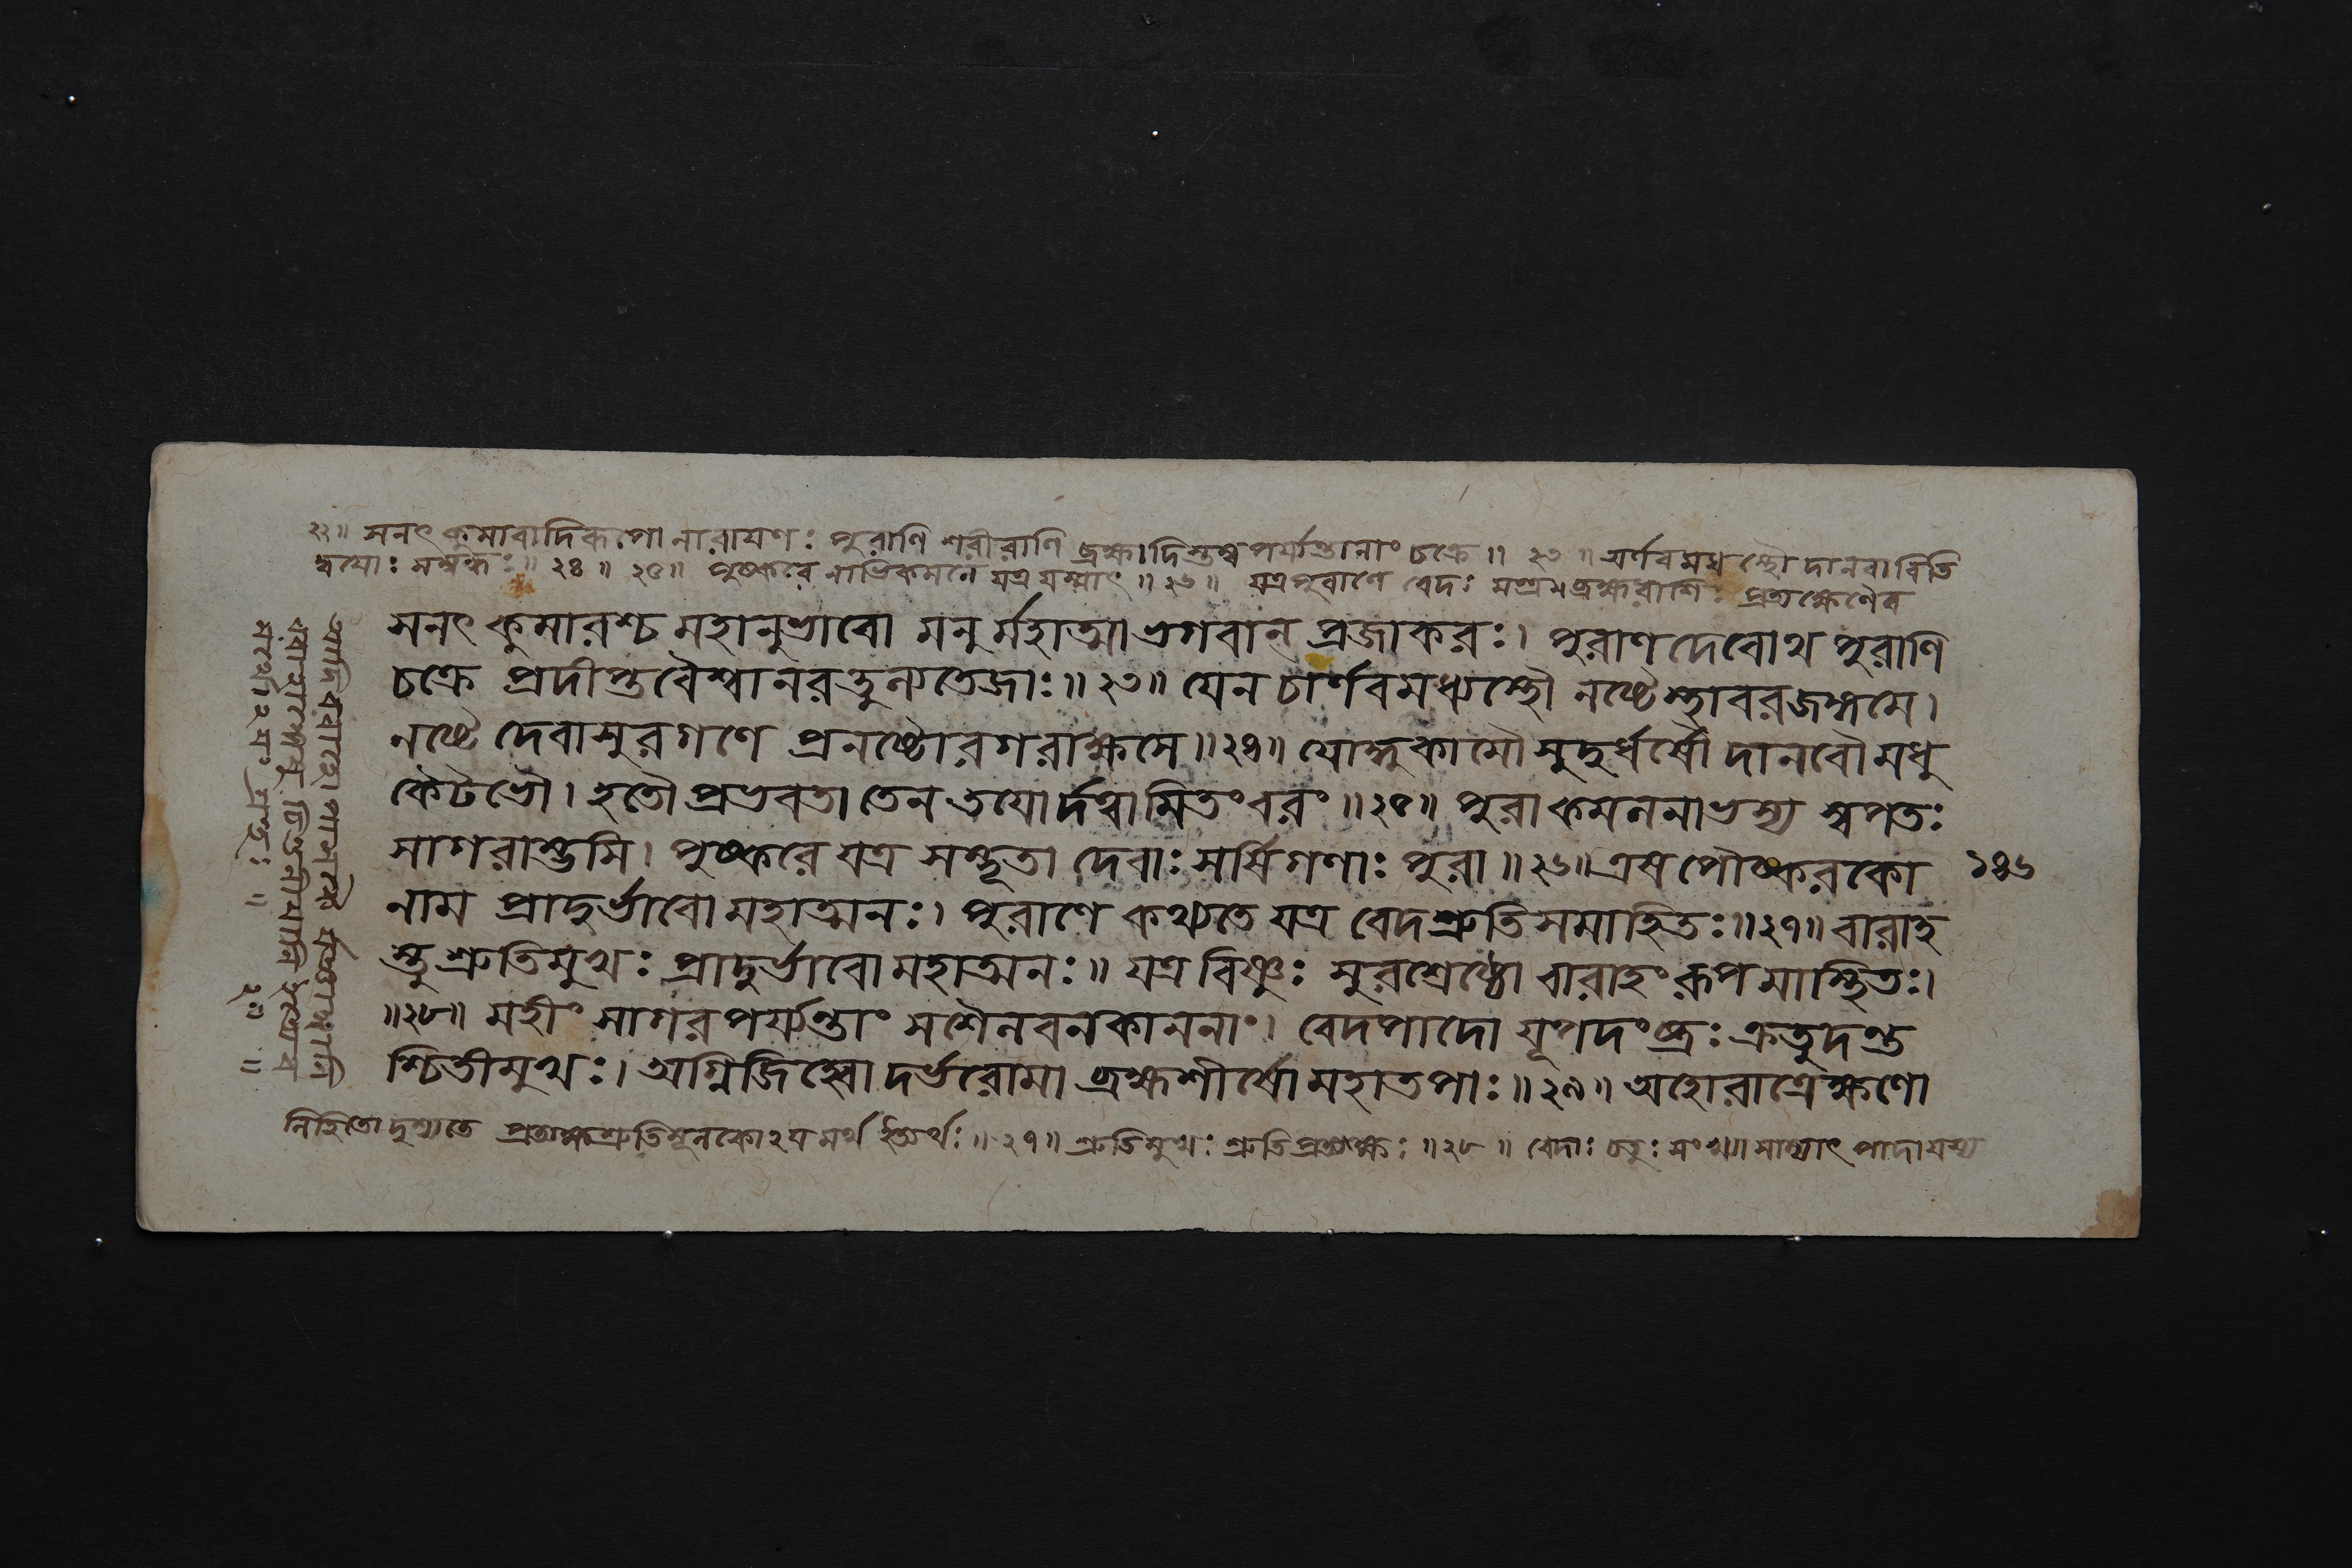 ২২॥ সনৎকুমারাদিরূপো নারায়ণঃ পুরাণি শরীরাণি ব্রহ্মাদিস্তম্বপর্য্যন্তানাং চক্রে॥ ২৩॥ অর্ণবমধ্যস্থৌ দানবাবিতি
দ্বয়োঃ সম্বন্ধঃ॥ ২৪॥ ২৫॥ পুষ্করে নাভিকমলে যত্র যস্মাৎ॥ ২৬॥ যত্র পুরাণে বেদঃ ব্রহ্মরাশিঃ প্রত্যক্ষেণৈব
সনৎকুমারশ্চ মহানুভাবো মনুর্ম্মহাত্মা ভগবান্ প্রজাকরঃ। পুরাণদেবোথ পুরাণি
চক্রে প্রদীপ্তবৈশ্বানরতুল্যতেজাঃ॥ ২৩॥ যেন চার্ণবমধ্যস্থৌ নষ্টে স্থাবরজঙ্গমে।
নষ্টে দেবাসুরগণে প্রনষ্টোরগরাক্ষসে॥ ২৪॥ যোদ্ধুকামৌ সুদুর্ধর্ষৌ দানবৌ মধু
কৈটভৌ। হতৌ প্রভবতা তেন তয়োর্দত্বামিতং বরং॥ ২৫॥ পুরা কমলনাভস্য স্বপতঃ
সাগরাম্ভসি। পুষ্করে যত্র সম্ভূতা দেবাঃ সর্ষিগণাঃ পুরা॥ ২৬॥ এষ পৌষ্করকো ১৪৬
নাম প্রাদুর্ভাবো মহাত্মনঃ। পুরাণে কথ্যতে যত্র বেদশ্রুতিসমাহিতঃ॥ ২৭॥ বারাহ
স্তু শ্রুতিমুখঃ প্রাদুর্ভাবো মহাত্মনঃ॥ যত্র বিষ্ণুঃ সুরশ্রেষ্ঠো বারাহং রূপমাস্থিতঃ।
॥ ২৮॥ মহীং সাগরপর্য্যন্তাং সশৈলবনকাননাং। বেদপাদো যূপদংষ্ট্রঃ ক্রতুদণ্ড
শ্চিতীমুখঃ। অগ্নিজিহ্বো দর্ভরোমা ব্রহ্মশীর্ষো মহাতপাঃ॥ ২৯॥ অহোরাত্রেক্ষণো
নিহিতো দৃশ্যতে প্রত্যক্ষশ্রুতিমূলকোঽয়মর্থ ইত্যর্থঃ॥ ২৭॥ শ্রুতিমুখঃ শ্রুতিপ্রত্যক্ষঃ॥ ২৮॥ বেদাঃ চতুঃসংখ্যাসাম্যাৎ পাদা যস্য